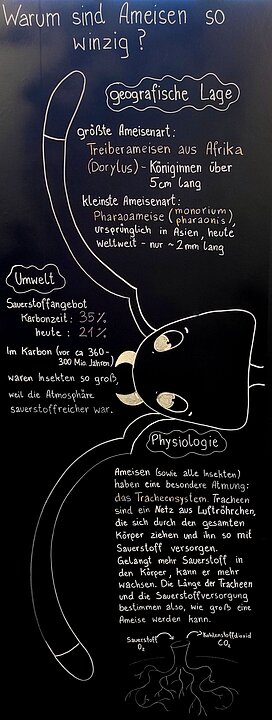 Warum sind Ameisen so
winzig?
geografische Lage
größte Ameisenart:
Treiberameisen aus Afrika
(Dorylus) - Königinnen über
5cm lang
kleinste Ameisenart:
Pharaoameise (monorium
pharaonis),
ursprünglich in Asien, heute
weltweit - nur ~2mm lang
Umwelt
Sauerstoffangebot
Karbonzeit: 35%
heute: 21%
Im Karbon (vor ca 360-
300 Mio. Jahren)
waren Insekten so groß,
weil die Atmosphäre
sauerstoffreicher war.
Physiologie
Ameisen (sowie alle Insekten)
haben eine besondere Atmung:
das Tracheensystem. Tracheen
sind ein Netz aus Luftröhrchen,
die sich durch den gesamten
Körper ziehen und ihn so mit
Sauerstoff versorgen.
Gelangt mehr Sauerstoff in
den Körper, kann er mehr
wachsen. Die Länge der Tracheen
und die Sauerstoffversorgung
bestimmen also, wie groß eine
Ameise werden kann.
Sauerstoff
O₂
Kohlenstoffdioxid
CO₂